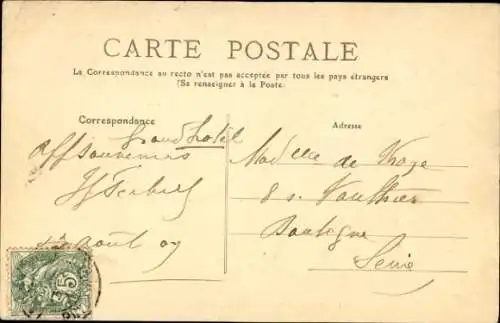 CARTE POSTALE
La Correspondance au recto n'est pas acceptée par tous les pays étrangers
(Se renseigner à la Poste)
Correspondance
Adresse
Grand hotel
Aff souvenirs
août 07
Madelle de
8 r. Vauthier
Boulogne
Seine
5